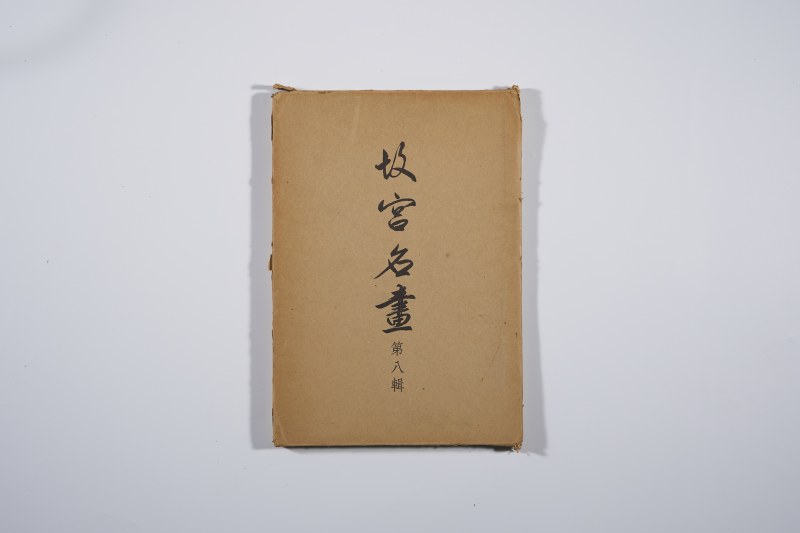 故宮名畫
第八輯